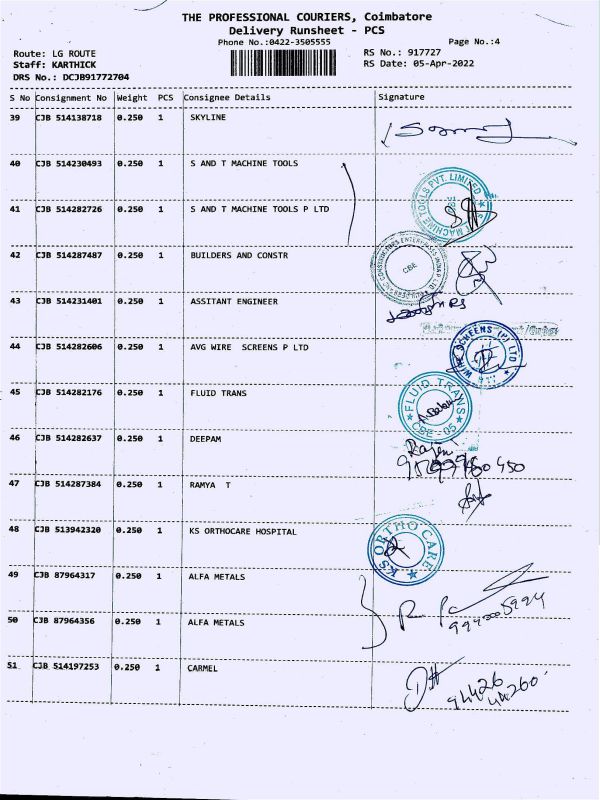 THE PROFESSIONAL COURIERS, Coimbatore
Delivery Runsheet - PCS
Phone No.:0422-3505555
Page No.:4
Route: LG ROUTE
RS No.: 917727
Staff: KARTHICK
RS Date: 05-Apr-2022
DRS No.: DCJB91772704
S No Consignment No Weight PCS Consignee Details Signature
39 CJB 514138718 0.250 1 SKYLINE
40 CJB 514230493 0.250 1 S AND T MACHINE TOOLS
41 CJB 514282726 0.250 1 S AND T MACHINE TOOLS P LTD
MACHINE TOOLS PVT. LIMITED
42 CJB 514287487 0.250 1 BUILDERS AND CONSTR
CBE
43 CJB 514231401 0.250 1 ASSITANT ENGINEER
44 CJB 514282606 0.250 1 AVG WIRE SCREENS P LTD
WIRE SCREENS (P) LTD
45 CJB 514282176 0.250 1 FLUID TRANS
FLUID TRANS CBE-05
46 CJB 514282637 0.250 1 DEEPAM
47 CJB 514287384 0.250 1 RAMYA T
48 CJB 513942320 0.250 1 KS ORTHOCARE HOSPITAL
KS ORTHO CARE
49 CJB 87964317 0.250 1 ALFA METALS
50 CJB 87964356 0.250 1 ALFA METALS
51 CJB 514197253 0.250 1 CARMEL
94426
44260